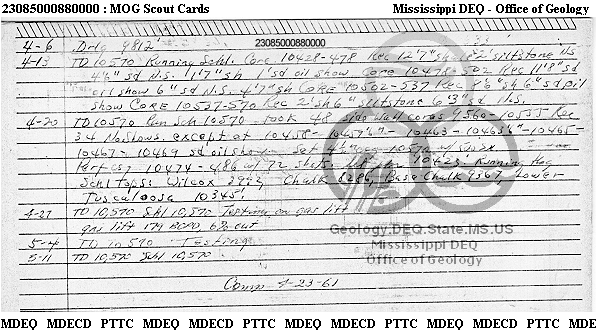 23085000880000 : MOG Scout Cards Mississippi DEQ - Office of Geology
23085000880000
4-6 Drlg 9812'
4-13 TD 10570 Running Schl. Core 10428-478 Rec 12'7" sh siltstone N.S
4'6" sd N.S. 1'7" sh 1' sd oil show Core 10478-502 Rec 11'8" sd
oil show 6" sd N.S. 4'7" sh CORE 10502-537 Rec sh 6" sd oil
show CORE 10537-570 Rec 2' sh 6" siltstone 6'3" sd N.S.
4-20 TD 10570 Ran Sch 10570 - took 48 side wall cores 9360-10555 Rec
34 No Shows. except at 10458- 10463- 10465-
10467-10469 sd oil show- Set 4½" csg 10570 w/
Perf csg 10474-486 w/ 72 shots. 10623' Running Hag
Schl tops: Wilcox Chalk 8286, Base Chalk 9367, Lower
Tuscaloosa 10345'
4-27 TD 10,570 Schl 10,570 Testing on gas lift
gas lift 179 BOPD, 6% cut
5-4 TD 10570 Testing
5-11 TD 10,570 Schl 10,570
Comp 4-23-61
Geology.DEQ.State.MS.US
Mississippi DEQ
Office of Geology
MDEQ MDECD PTTC MDEQ MDECD PTTC MDEQ MDECD PTTC MDEQ MDECD PTTC MDEQ